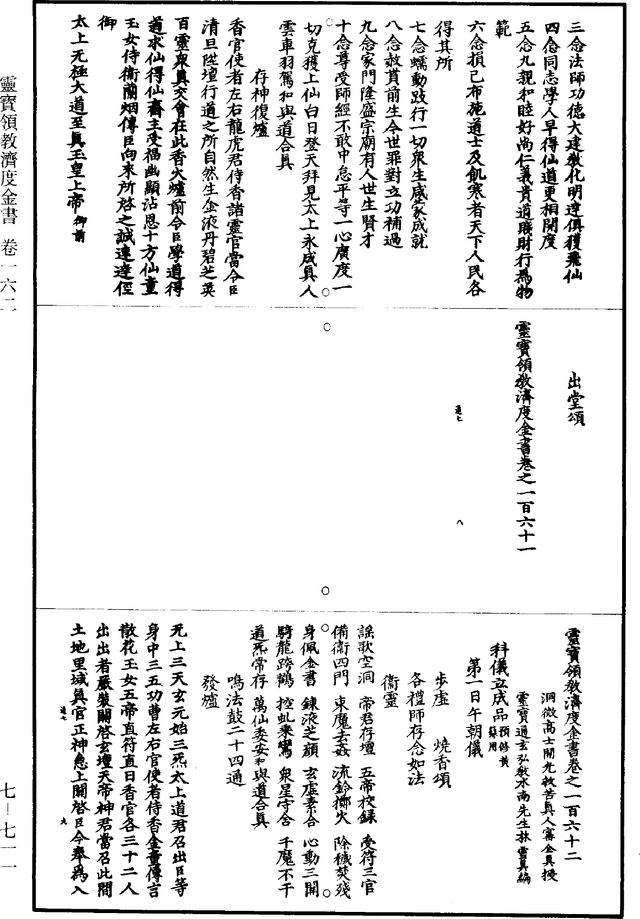 靈寶領教濟度金書 卷一六二
三念法師功德大建教化明達俱獲飛仙
四念同志學人早得仙道更相開度
五念九親和睦好尚仁義貴道賤財行為物
範
六念損己布施道士及飢寒者天下人民各
得其所
七念蠕動跂行一切衆生咸蒙成就
八念赦貰前生今世罪對立功補過
九念家門隆盛宗廟有人世生賢才
十念尊受師經不敢中怠平等一心廣度一
切克獲上仙白日登天拜見太上永成真人
雲車羽駕和與道合真
存神復爐
香官使者左右龍虎君侍香諸靈官當令臣
清旦陞壇行道之所自然生金液丹碧芝英
百靈衆真交會在此香火爐前令臣學道得
道求仙得仙齋主受福幽顯沾恩十方仙童
玉女侍衛蘭烟傳臣向來所啓之誠速達徑
御
太上无極大道至真玉皇上帝御前
出堂頌
靈寶領教濟度金書卷之一百六十一
通七
八
靈寶領教濟度金書卷之一百六十二
洞微高士開光救苦真人甯全真授
靈寶通玄弘教水南先生林靈真編
科儀立成品預修黄籙用
第一日午朝儀
步虛 燒香頌
各禮師存念如法
衛靈
謡歌空洞 帝君存壇 五帝校錄 受符三官
備衛四門 束魔去姦 流鈴擲火 除穢焚殘
身佩金書 錬液之顔 玄虛素合 心動三開
騎龍跨鶴 控虬乘鸞 衆星守舍 千魔不干
道炁常存 萬仙委安和與道合真
鳴法鼓二十四通
發爐
无上三天玄元始三炁太上道君召出臣等
身中三五功曹左右官使者侍香金童傳言
散花玉女五帝直符直日香官各三十二人
出出者嚴裝關啓玄壇天帝神君當召此間
土地里域真官正神急上關啓臣今舉爲入
通七
九
七－七一一